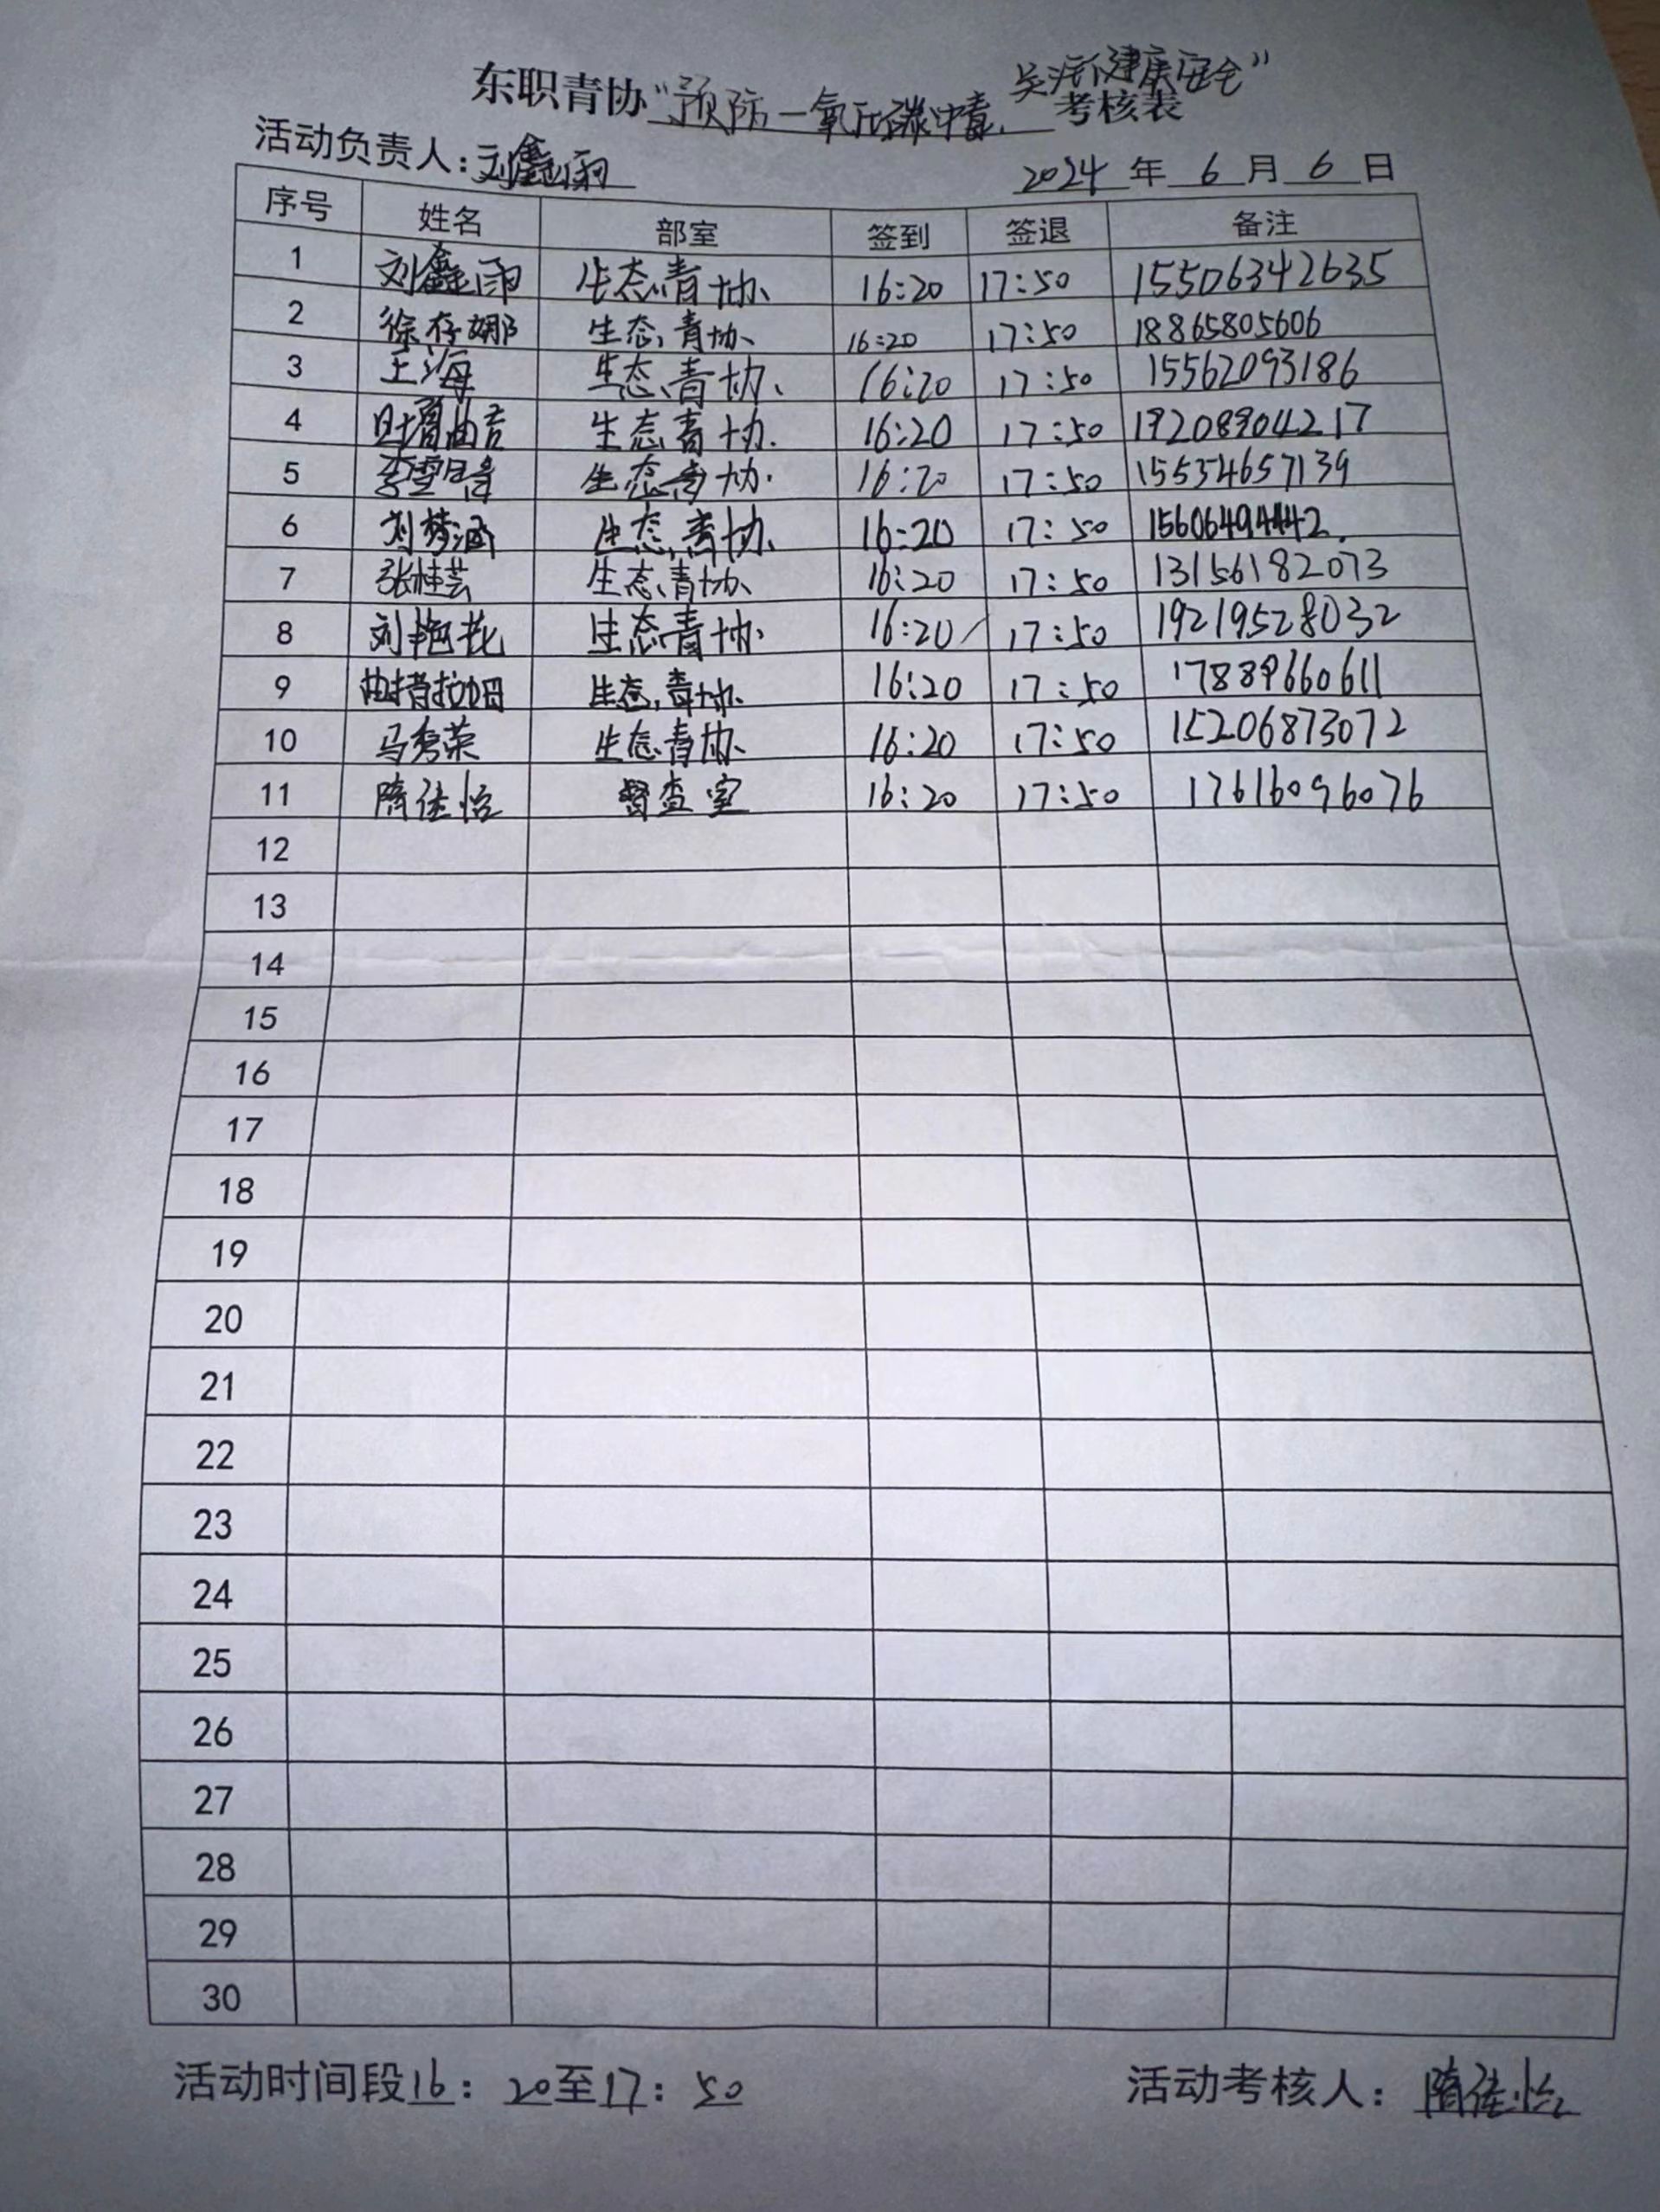 东职青协“预防一氧化碳中毒、关注健康安全”考核表
活动负责人:刘鑫雨 2024 年 6 月 6 日
序号 姓名 部室 签到 签退 备注
1 刘鑫雨 生态青协 16:20 17:50 15506342635
2 徐存娜 生态青协 16:20 17:50 18865805606
3 王海 生态青协 16:20 17:50 15562093186
4 旦增曲吉 生态青协 16:20 17:50 19208904217
5 李雪晴 生态青协 16:20 17:50 15554657139
6 刘梦涵 生态青协 16:20 17:50
7 张桂芸 生态青协 16:20 17:50 13156182073
8 刘艳花 生态青协 16:20 17:50 19219528032
9 曲措拉姆 生态青协 16:20 17:50 17889660611
10 马秀荣 生态青协 16:20 17:50 15206873072
11 隋佳怡 督查室 16:20 17:50 17616096076
12
13
14
15
16
17
18
19
20
21
22
23
24
25
26
27
28
29
30
活动时间段16:20至17:50 活动考核人:隋佳怡